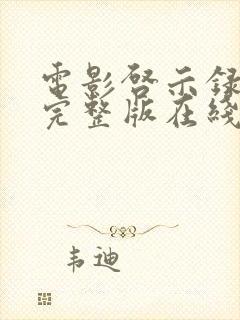 電影啓示錄
完整版在綫
韦迪